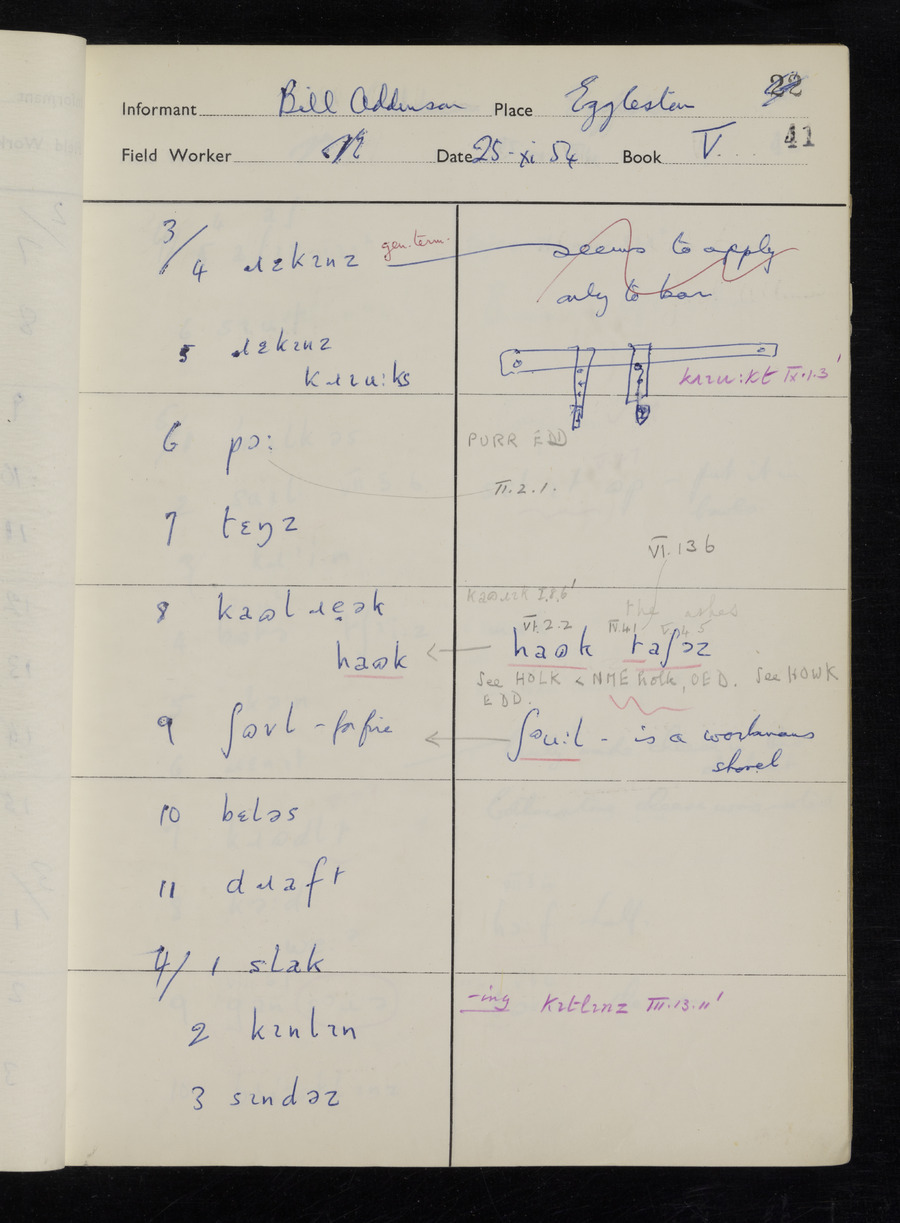 22
Informant Bill Addinson Place Eggleston
41
Field Worker Date 25-xi 54 Book V.
3/4 ɹɛkɪnz gen. term. seems to apply
only to bar
5 ɹɛkɪnz
kɹɪu:ks
kɹɪu:kt IX.1.3'
6 pɔ: PURR EDD
II.2.1.
7 tɛŋz
VI.13 6
8 kaʊl ɹeək
the ashes
VI.2.2 IV.41 V.4.5
haʊk ← haʊk t aʃəz
See HOLK < NME holk, OED. See HOWK
EDD.
9 ʃʊvl - for fire ← ʃu:l - is a workmans
shovel
10 bɛləs
11 dɹaft
4/1 slak
-ing kɪtlɪnz III.13.11'
2 kɪnlɪn
3 sɪndəz